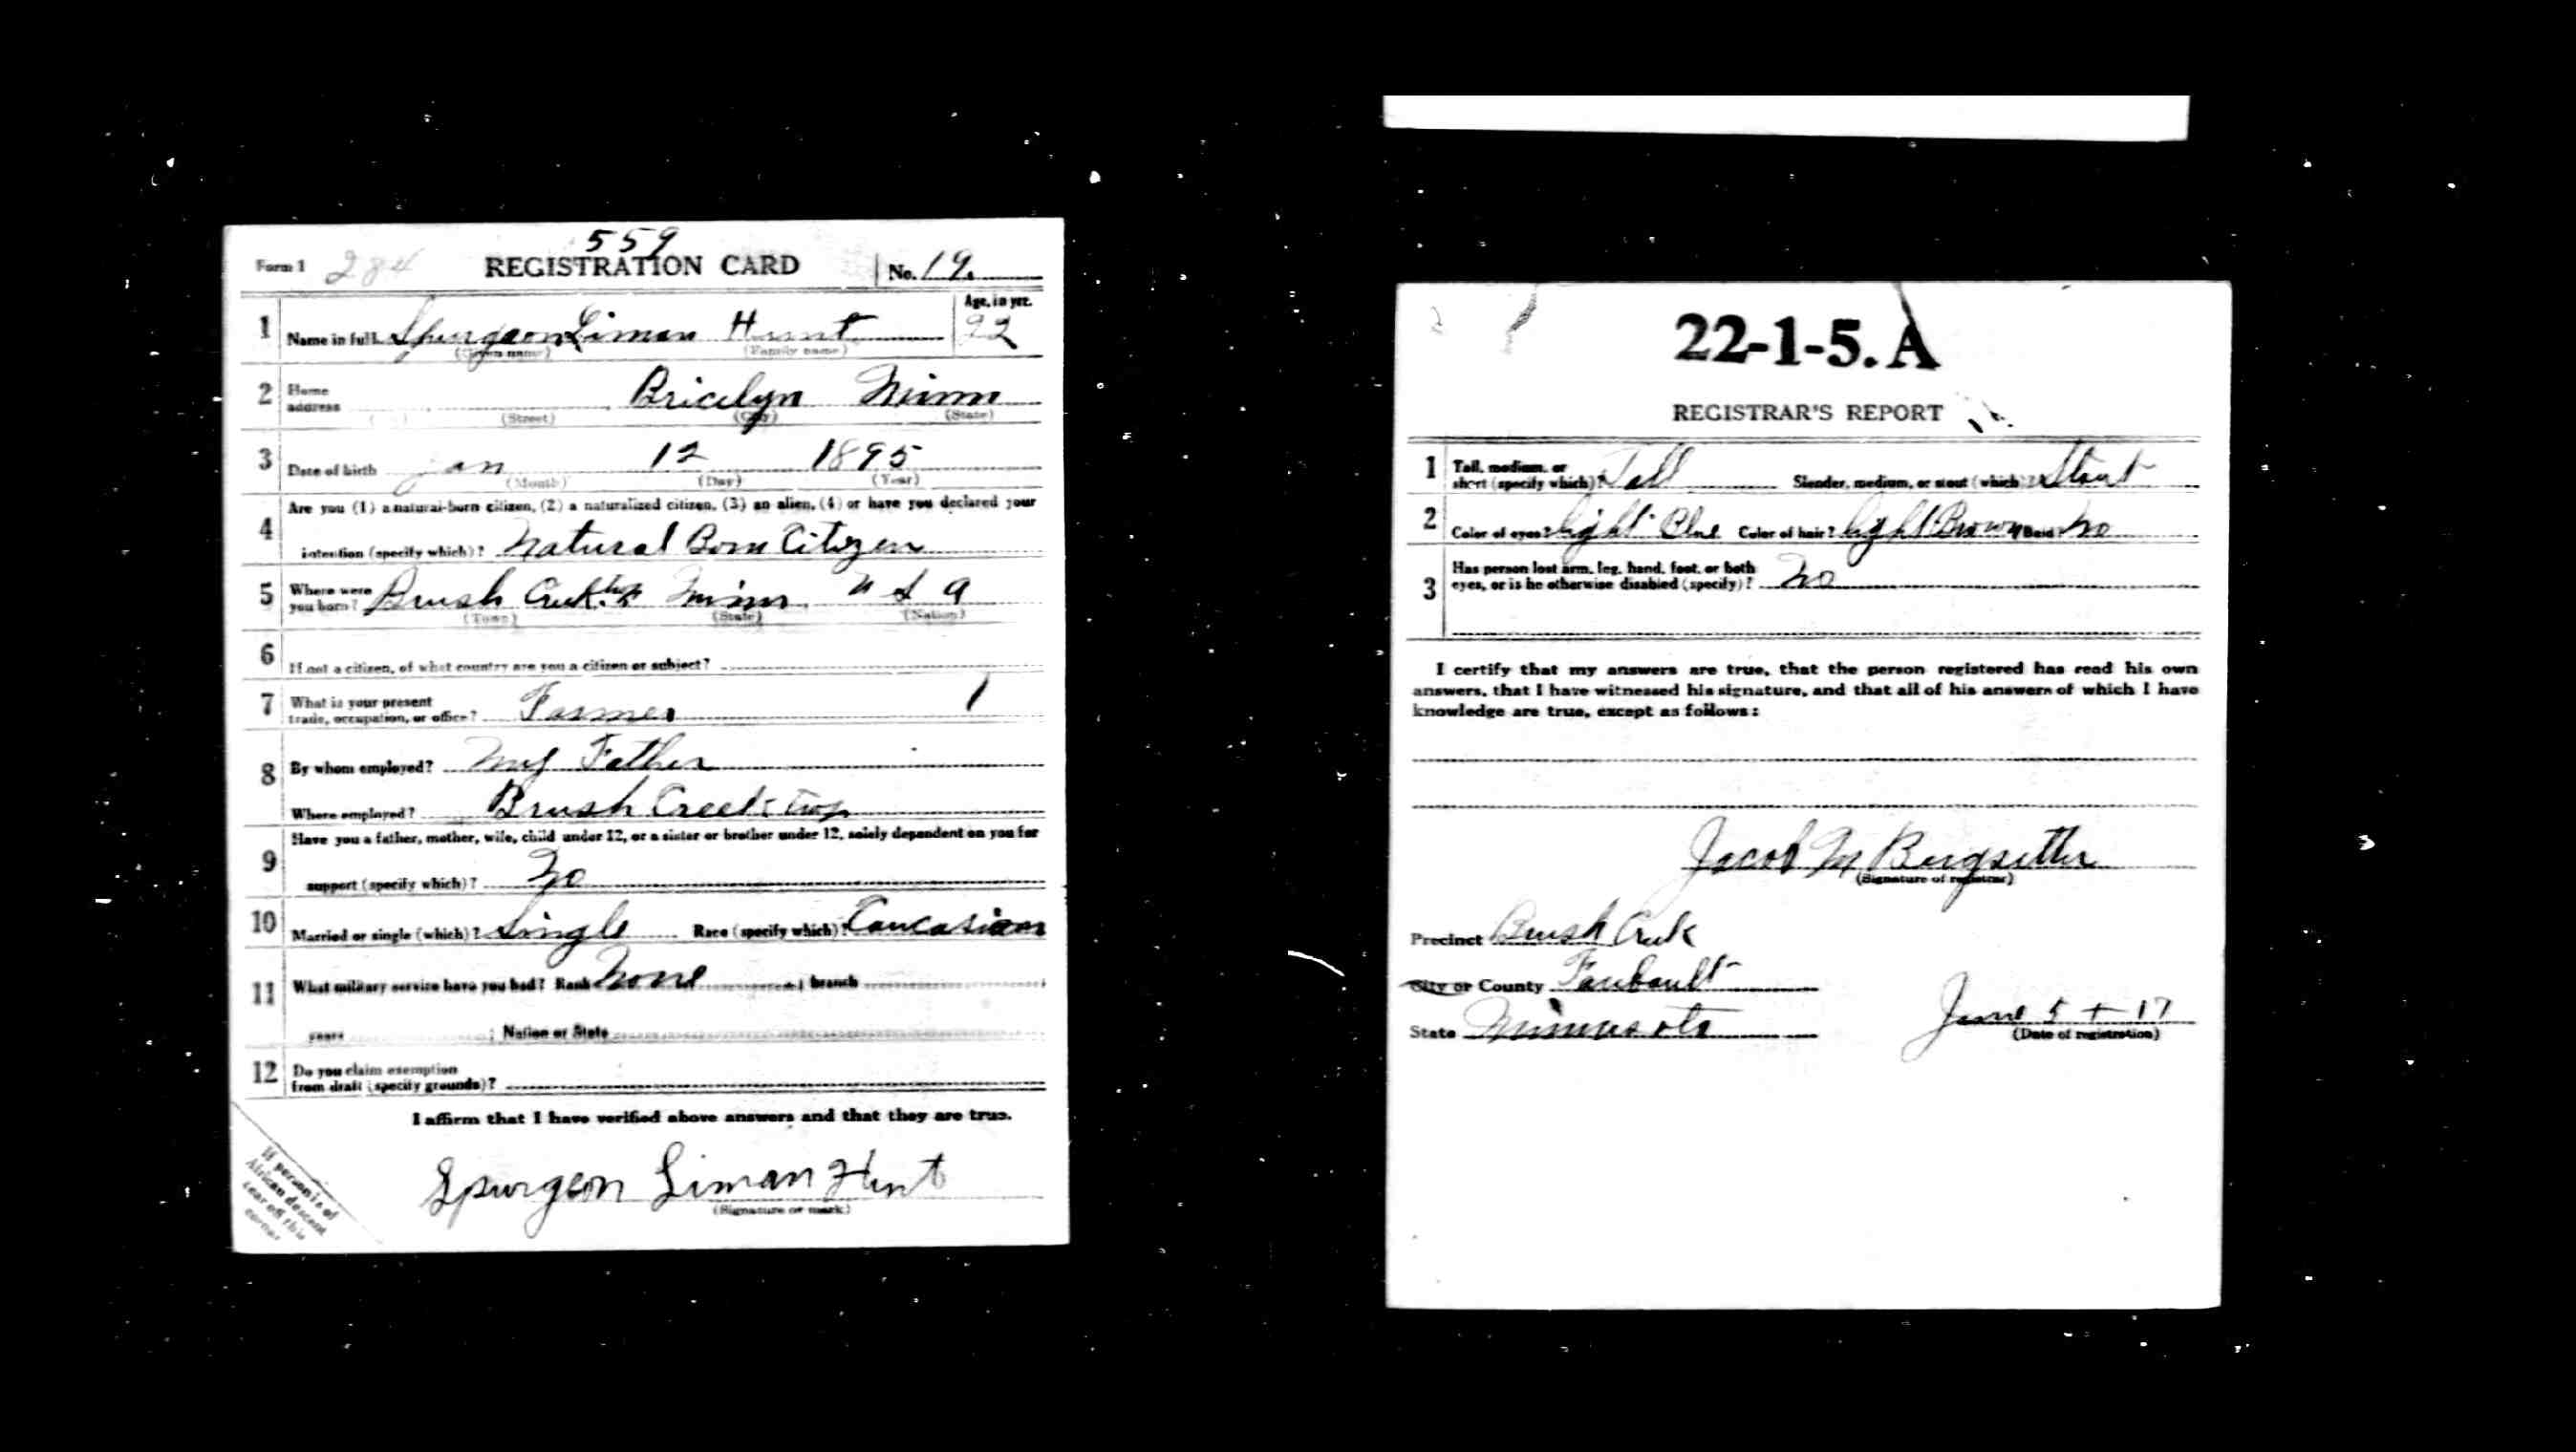 559
Form 1 284 REGISTRATION CARD No. 19.
1 Name in full Spurgeon Liman Hunt Age, in yrs. 22
(Given name) (Family name)
2 Home address Bricelyn Minn
(Street) (City) (State)
3 Date of birth Jan 12 1895
(Month) (Day) (Year)
4 Are you (1) a natural-born citizen, (2) a naturalized citizen, (3) an alien, (4) or have you declared your
intention (specify which)? Natural Born Citizen
5 Where were you born? Brush Creek Minn U S A
(Town) (State) (Nation)
6 If not a citizen, of what country are you a citizen or subject?
7 What is your present trade, occupation, or office? Farmer 1
8 By whom employed? My Father
Where employed? Brush Creek Twp
9 Have you a father, mother, wife, child under 12, or a sister or brother under 12, solely dependent on you for
support (specify which)? No
10 Married or single (which)? Single Race (specify which)? Caucasian
11 What military service have you had? Rank None ; branch
years ; Nation or State
12 Do you claim exemption from draft (specify grounds)?
I affirm that I have verified above answers and that they are true.
Spurgeon Liman Hunt
(Signature or mark)
If person is of
African descent
tear off this
corner
22-1-5. A
REGISTRAR'S REPORT
1 Tall, medium, or short (specify which)? Tall Slender, medium, or stout (which)? Stout
2 Color of eyes? Light Blue Color of hair? Light Brown Bald? No
3 Has person lost arm, leg, hand, foot, or both
eyes, or is he otherwise disabled (specify)? No
I certify that my answers are true, that the person registered has read his own
answers, that I have witnessed his signature, and that all of his answers of which I have
knowledge are true, except as follows:
Jacob M Bergsether
(Signature of registrar)
Precinct Brush Creek
City or County Faribault
State Minnesota June 5 + 17
(Date of registration)